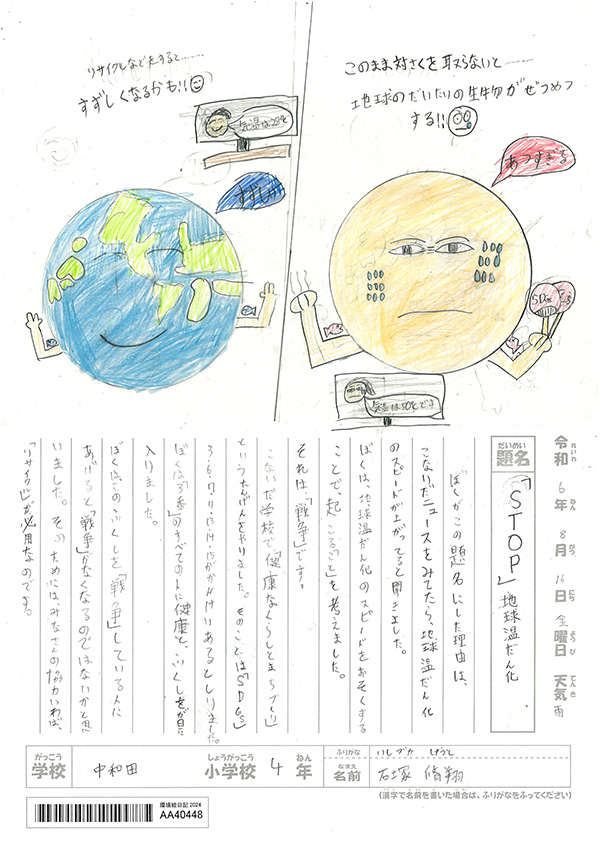 リサイクルなどをすると………
すずしくなるかも!!
気温は28℃
すずしい
このまま対さくを取らないと………
地球のだいたいの生物がぜつめつ
する!!
あつすぎる
SDGs
気温は50℃です
令和6年8月16日金曜日 天気 雨
れいわ ねん がつ にち ようび てんき
だいめい
題名
「STOP」地球温だん化
ぼくがこの題名にした理由は、
こないだニュースをみてたら、地球温だん化
のスピードが上がってると聞きました。
ぼくは、地球温だん化のスピードをおそくする
ことで、起こること」を考えました。
それは「戦争」です。
こないだ学校で「健康なくらしとまちづくり」
というたんげんをやりました。そのことは「SDGs」
3.6.7.11.13.14.15がかんけいあるとしりました。
ぼくは「3番」のすべての人に健康と、ふくしを」が目に
入りました。
ぼくは、このふくしを「戦争」している人に
あげると「戦争」がなくなるのではないかと思
いました。そのためにはみなさんの協力いわば、
「リサイクル」が必用なのです。
がっこう
学校
中和田
しょうがっこう
小学校
4
ねん
年
ふりがな
いしづか
なまえ
名前
石塚 脩翔
(漢字で名前を書いた場合は、ふりがなをふってください)
環境絵日記 2024
AA40448